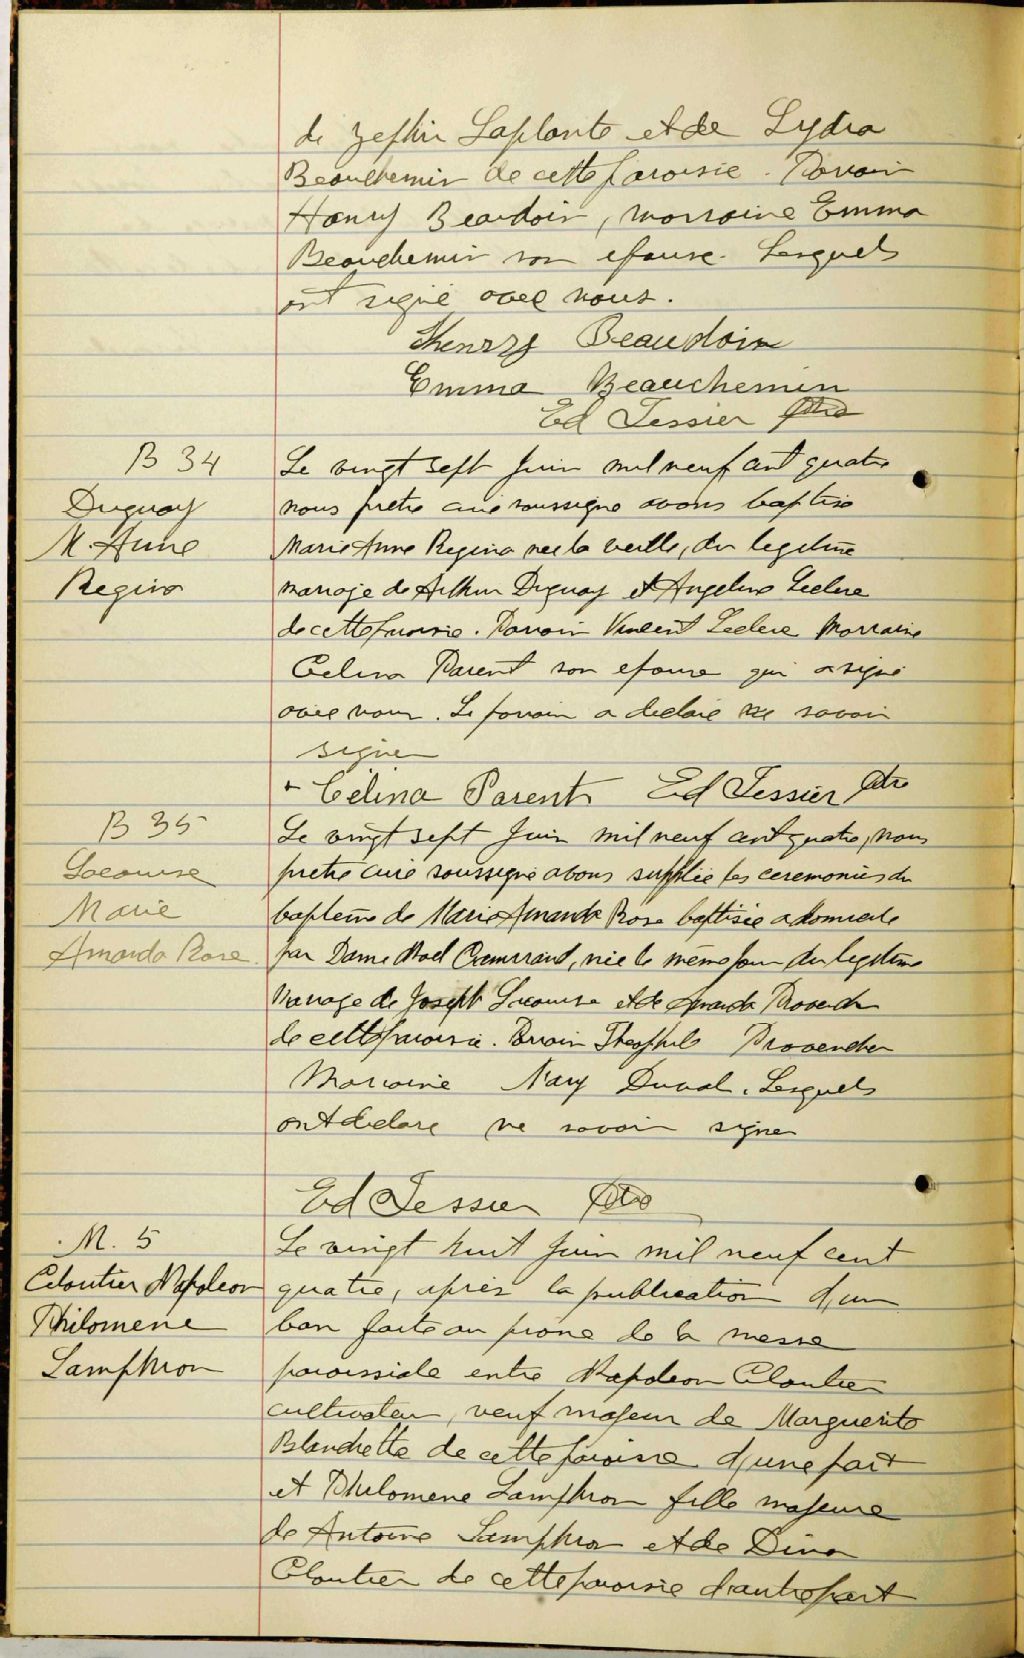 de Zephir Laplante et de Lydia
Beauchemin de cette paroisse. Parrain
Henry Beaudoin, marraine Emma
Beauchemin son epouse. Lesquels
ont signé avec nous.
Henrry Beaudoin
Emma Beauchemin
Ed Tessier Ptre
B 34
Duguay
M. Anne
Regina
Le vingt sept Juin mil neuf cent quatre
nous pretre curé soussigne avons baptise
Marie Anne Regina nee la veille, du legitime
mariage de Arthur Duguay et Angelina Leclerc
de cette paroisse. Parrain Vincent Leclerc Marraine
Celina Parent son epouse qui a signé
avec nous. Le parrain a declaré ne savoir
signer
Célina Parent Ed Tessier Ptre
B 35
Lacourse
Marie
Amanda Rose.
Le vingt sept Juin mil neuf cent quatre, nous
pretre curé soussigné avons supplée les ceremonies du
bapteme de Marie Amanda Rose baptisée a domicile
par Dame Noel née le même jour du legitime
Mariage de Joseph Lacourse et de Amanda Provencher
de cette paroisse. Parrain Theophile Provencher
Marraine Mary Duval. Lesquels
ont declare ne savoir signer
Ed Tessier Ptre
M. 5
Cloutier Napoleon
Philomene
Lamphron
Le vingt huit Juin mil neuf cent
quatre, apres la publication d'un
ban faite au prone de la messe
paroissiale entre Napoleon Cloutier
cultivateur, veuf majeur de Marguerite
Blanchette de cette paroisse d'une part
et Philomene Lamphron fille majeure
de Antoine Lamphron et de Dina
Cloutier de cette paroisse d'autre part